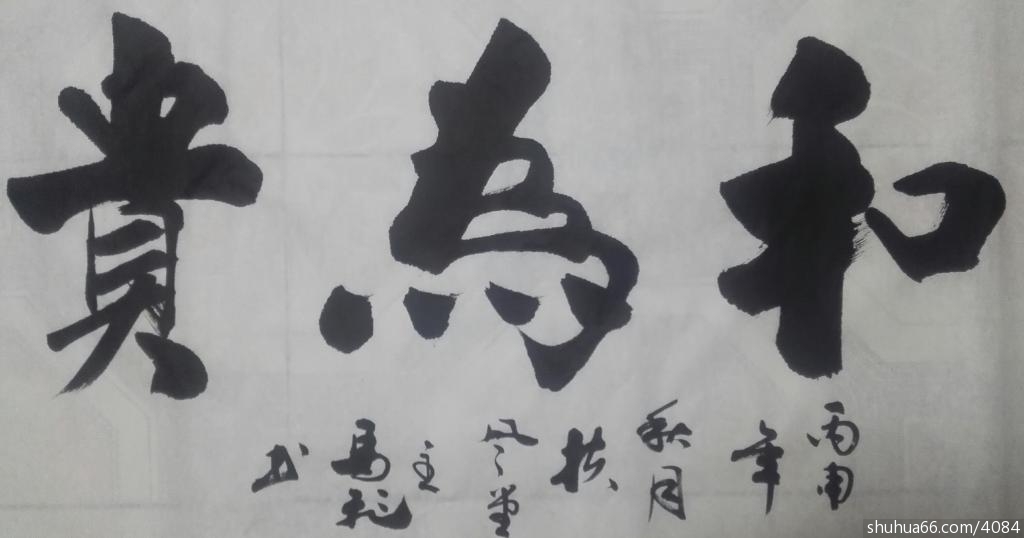 和為貴
丙申
年
秋月
扶
風堂
主
馬
書
shuhua66.com/4084